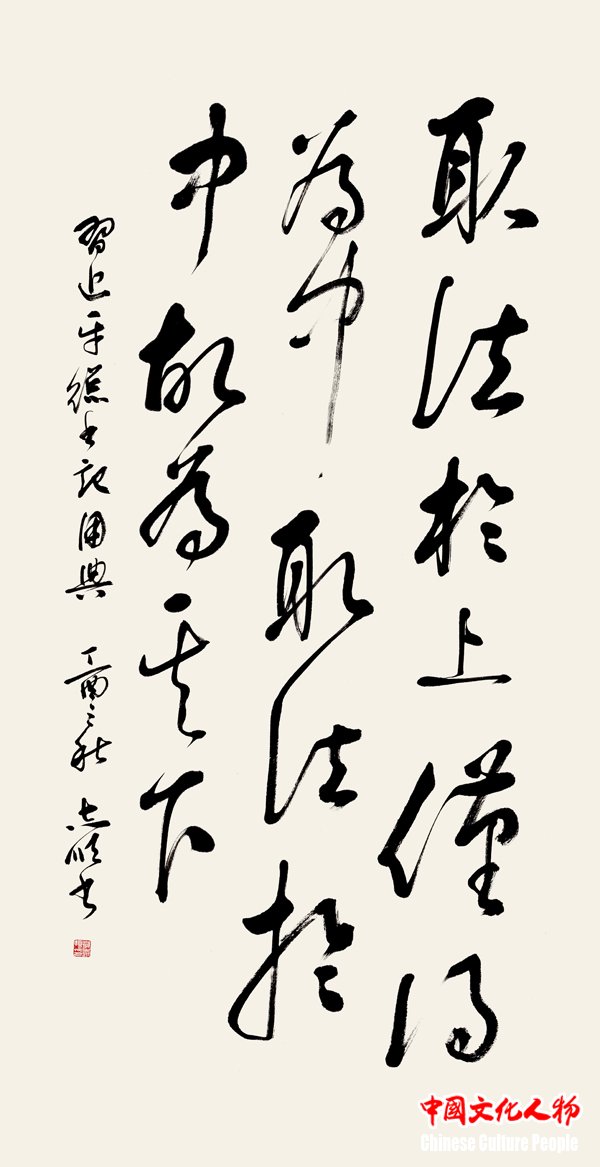 取法於上僅得
為中取法於
中故為其下
習近平總書記用典 丁酉之秋 志順書
中國文化人物
Chinese Culture People